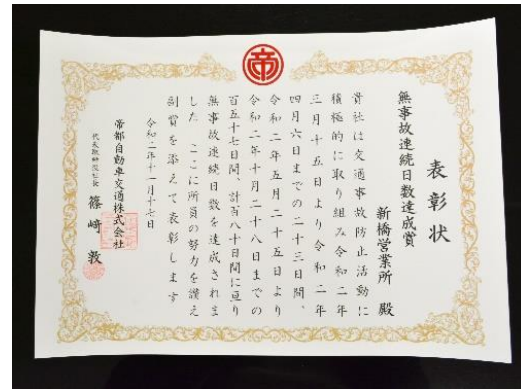 帝
表彰状
無事故連続日数達成賞
新橋営業所 殿
貴社は交通事故防止活動に
積極的に取り組み令和二年
三月十五日より令和二年
四月六日までの二十三日間、
令和二年五月二十五日より
令和二年十月二十八日までの
百五十七日間、計百八十日間に亘り
無事故連続日数を達成されま
した ここに所員の努力を讃え
副賞を添えて表彰します
令和二年十一月十七日
帝都自動車交通株式会社
代表取締役社長 篠崎 毅